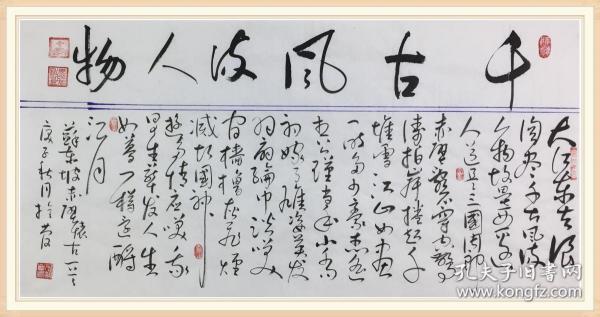 千古風流人物
大江东去浪
淘尽千古风流
人物故垒西边
人道是三國周郎
赤壁乱石穿空惊
涛拍岸捲起千
堆雪江山如画
一时多少豪杰遥
想公瑾当年小乔
初嫁了雄姿英发
羽扇纶巾谈笑
间樯橹灰飞烟
灭故國神
游多情应笑我
早生华发人生
如梦一樽还酹
江月
蘇东坡赤壁怀古一首
庚子秋月於
孔夫子旧书网
www.kongfz.com